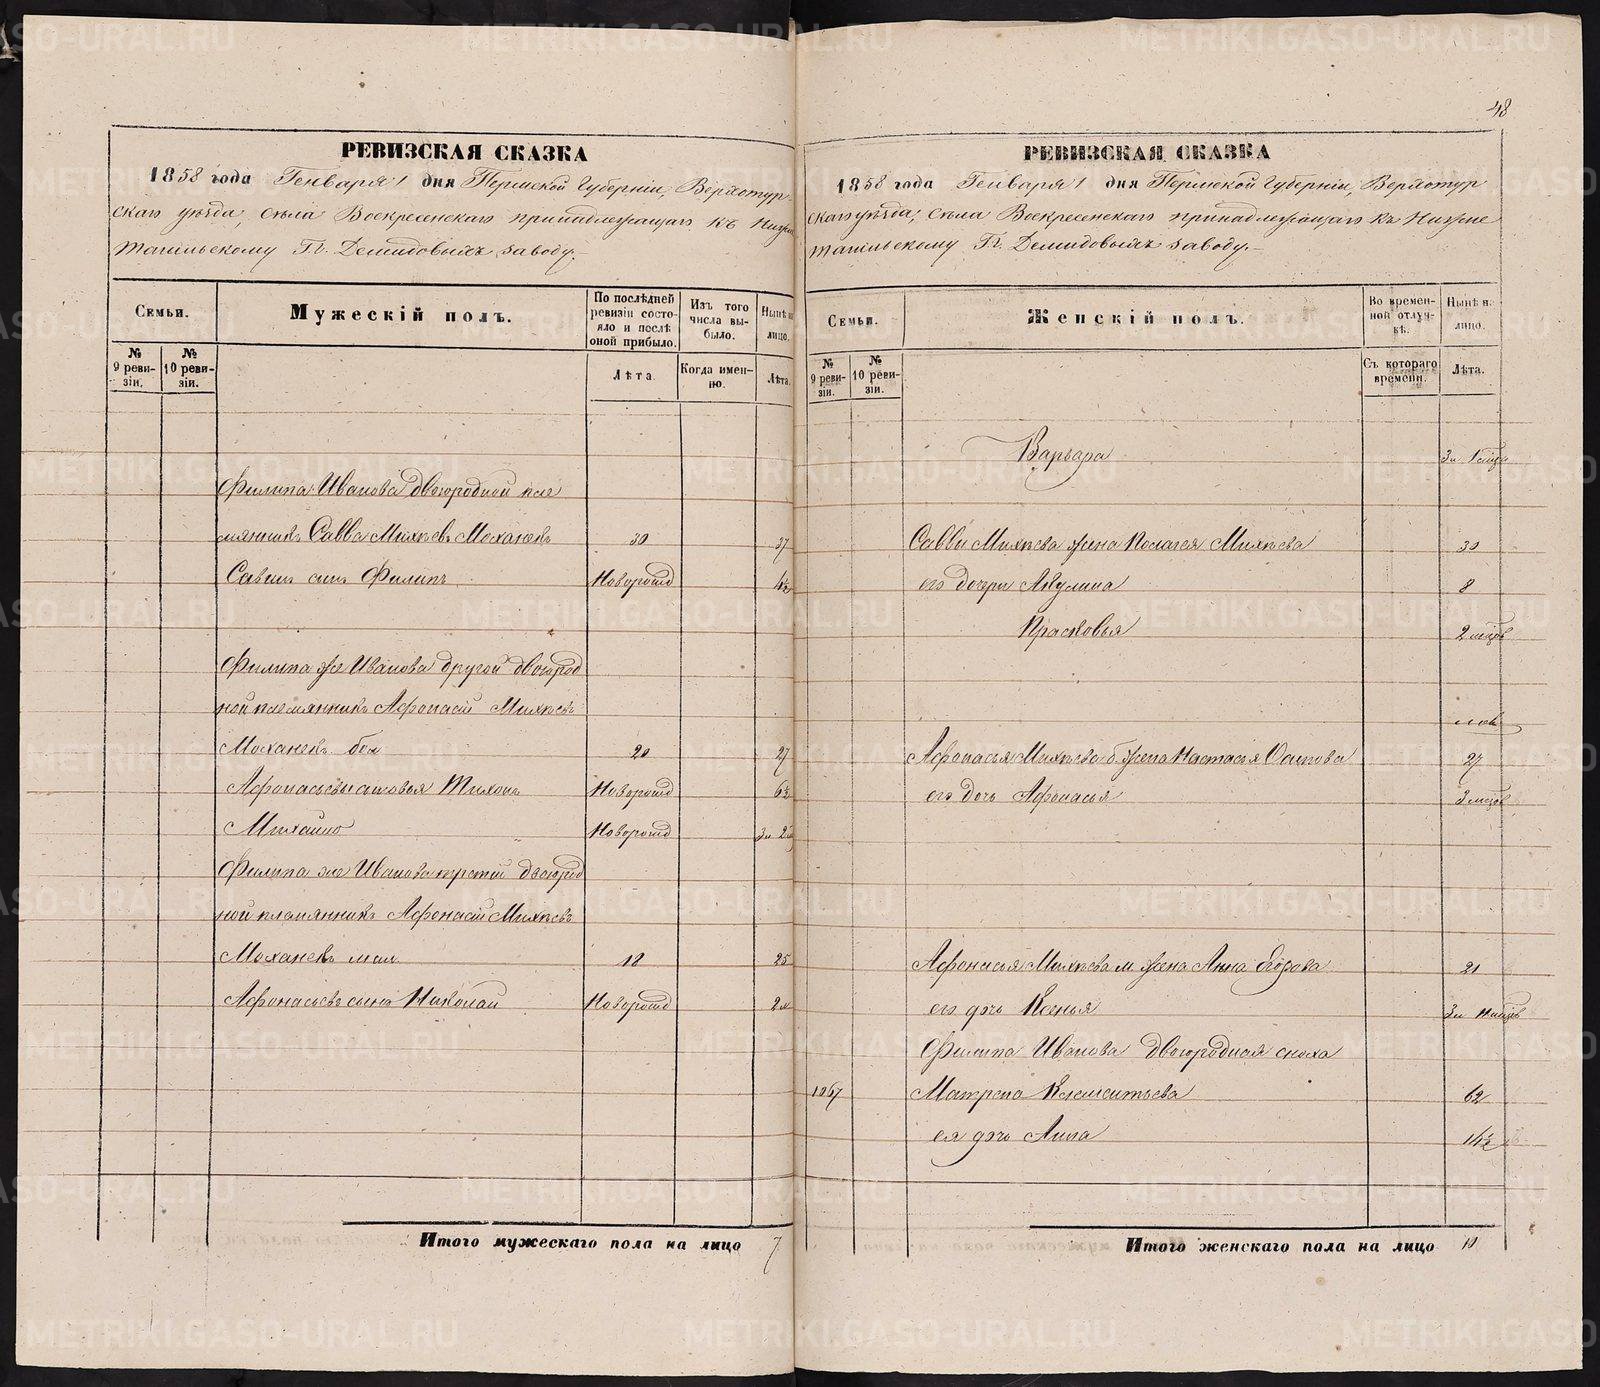 48
РЕВИЗСКАЯ СКАЗКА
1858 года Генваря 1 дня Пермской Губернiи, Верхотур-
скаго уѣзда, села Воскресенскаго принадлежащаго къ Нижне
тагильскому Гг. Демидовыхъ заводу.
Семьи.
Мужескiй полъ.
По послѣдней ревизiи состо-яло и послѣ оной прибыло.
Изъ того числа вы-было.
Нынѣ на лицо.
№ 9 реви-зiи.
№ 10 реви-зiи.
Лѣта.
Когда имен-но.
Лѣта.
Филипа Иванова двоюродной пле
мянникъ Савва Михѣевъ Моханевъ 30 37
Саввинъ сынъ Филипъ Новорожд 4½
Филипа же Иванова другой двоюрод
ной племянникъ Афонасiй Михѣевъ
Моханевъ бол 20 27
Афонасьевы сыновья Тихонъ Новорожд 6½
Михайло Новорожд
Филипа же Иванова третiй двоюрод
ной племянникъ Афонасiй Михѣевъ
Моханевъ мал 18 25
Афонасьевъ сынъ Николай Новорожд
Итого мужескаго пола на лицо 7
РЕВИЗСКАЯ СКАЗКА
1858 года Генваря 1 дня Пермской Губернiи, Верхотур
скаго уѣзда, села Воскресенскаго принадлежащаго къ Нижне
тагильскому Гг. Демидовыхъ заводу.
Семьи.
Женскiй полъ.
Во времен-ной отлуч-кѣ.
Нынѣ на лицо.
№ 9 реви-зiи.
№ 10 реви-зiи.
Съ котораго времени.
Лѣта.
Варвара
Саввы Михѣева жена Пелагея Михѣева 30
его дочери Акулина 8
Прасковья 2 мѣсъ
Афонасья Михѣева б. жена Настасья Осипова 27
его дочь Афонасья
Афонасья Михѣева м жена Анна Егорова 21
его дочь Ксенья
Филипа Иванова двоюродная сноха
1067 Матрена Клементьева 62
ея дочь Анна 14½
Итого женскаго пола на лицо 10
METRIKI.GASO-URAL.RU